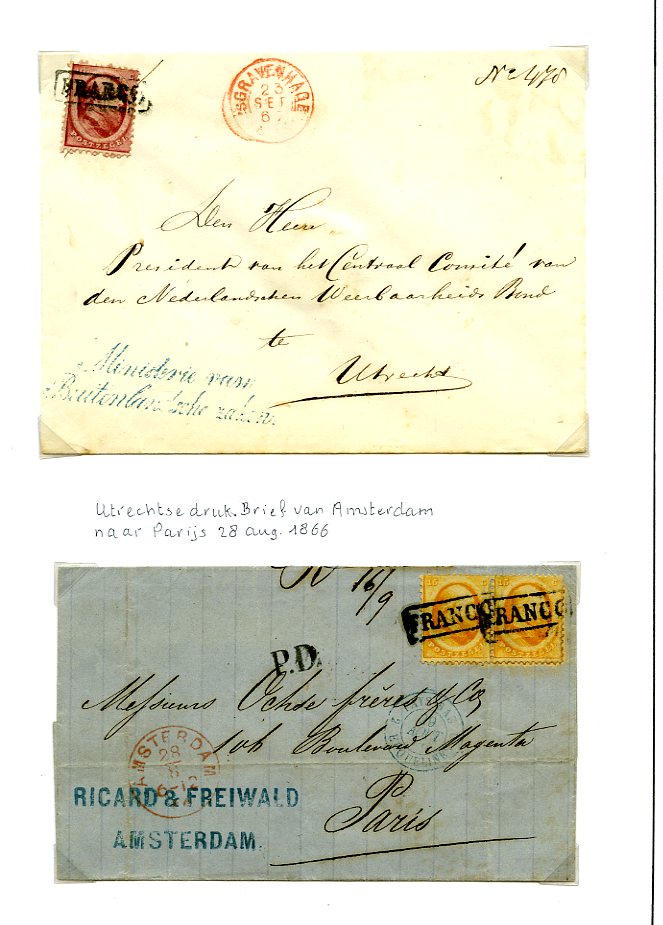 FRANCO
POSTZEGEL
'SGRAVENHAGE
23
SEP
Nº 478
Den Heer
President van het Centraal Comité van
den Nederlandschen Weerbaarheids Bond
te
Utrecht
Ministerie van
Buitenlandsche zaken.
Utrechtse druk. Brief van Amsterdam
naar Parijs 28 aug. 1866
16/9
15 15
FRANCO FRANCO
POSTZEGEL POSTZEGEL
P.D.
Messieurs Ochde frères & Co
106 Boulevard Magenta
Paris
AMSTERDAM
28
8
RICARD & FREIWALD
AMSTERDAM.